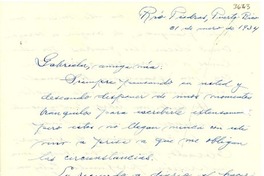 3683
Río Piedras, Puerto Rico
21 de marzo de 1934
Gabriela, amiga mía:
Siempre pensando en usted y
deseando disponer de unos momentos
tranquilos para escribirle extensamente
pero estos no llegan nunca con este
vivir a prisa a que me obligan
las circunstancias.
La recuerdo a diario al hacer